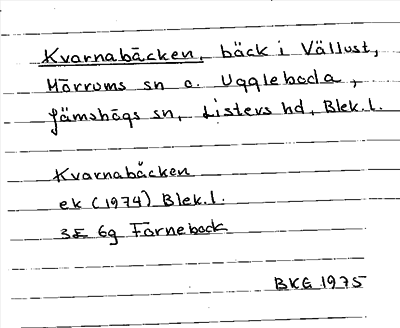 Kvarnabäcken, bäck i Vällust,
Mörrums sn o. Uggleboda,
Jämshögs sn, Listers hd, Blek.l.
Kvarnabäcken
ek (1974) Blek.l.
3E 6g Farnebock
BKE 1975